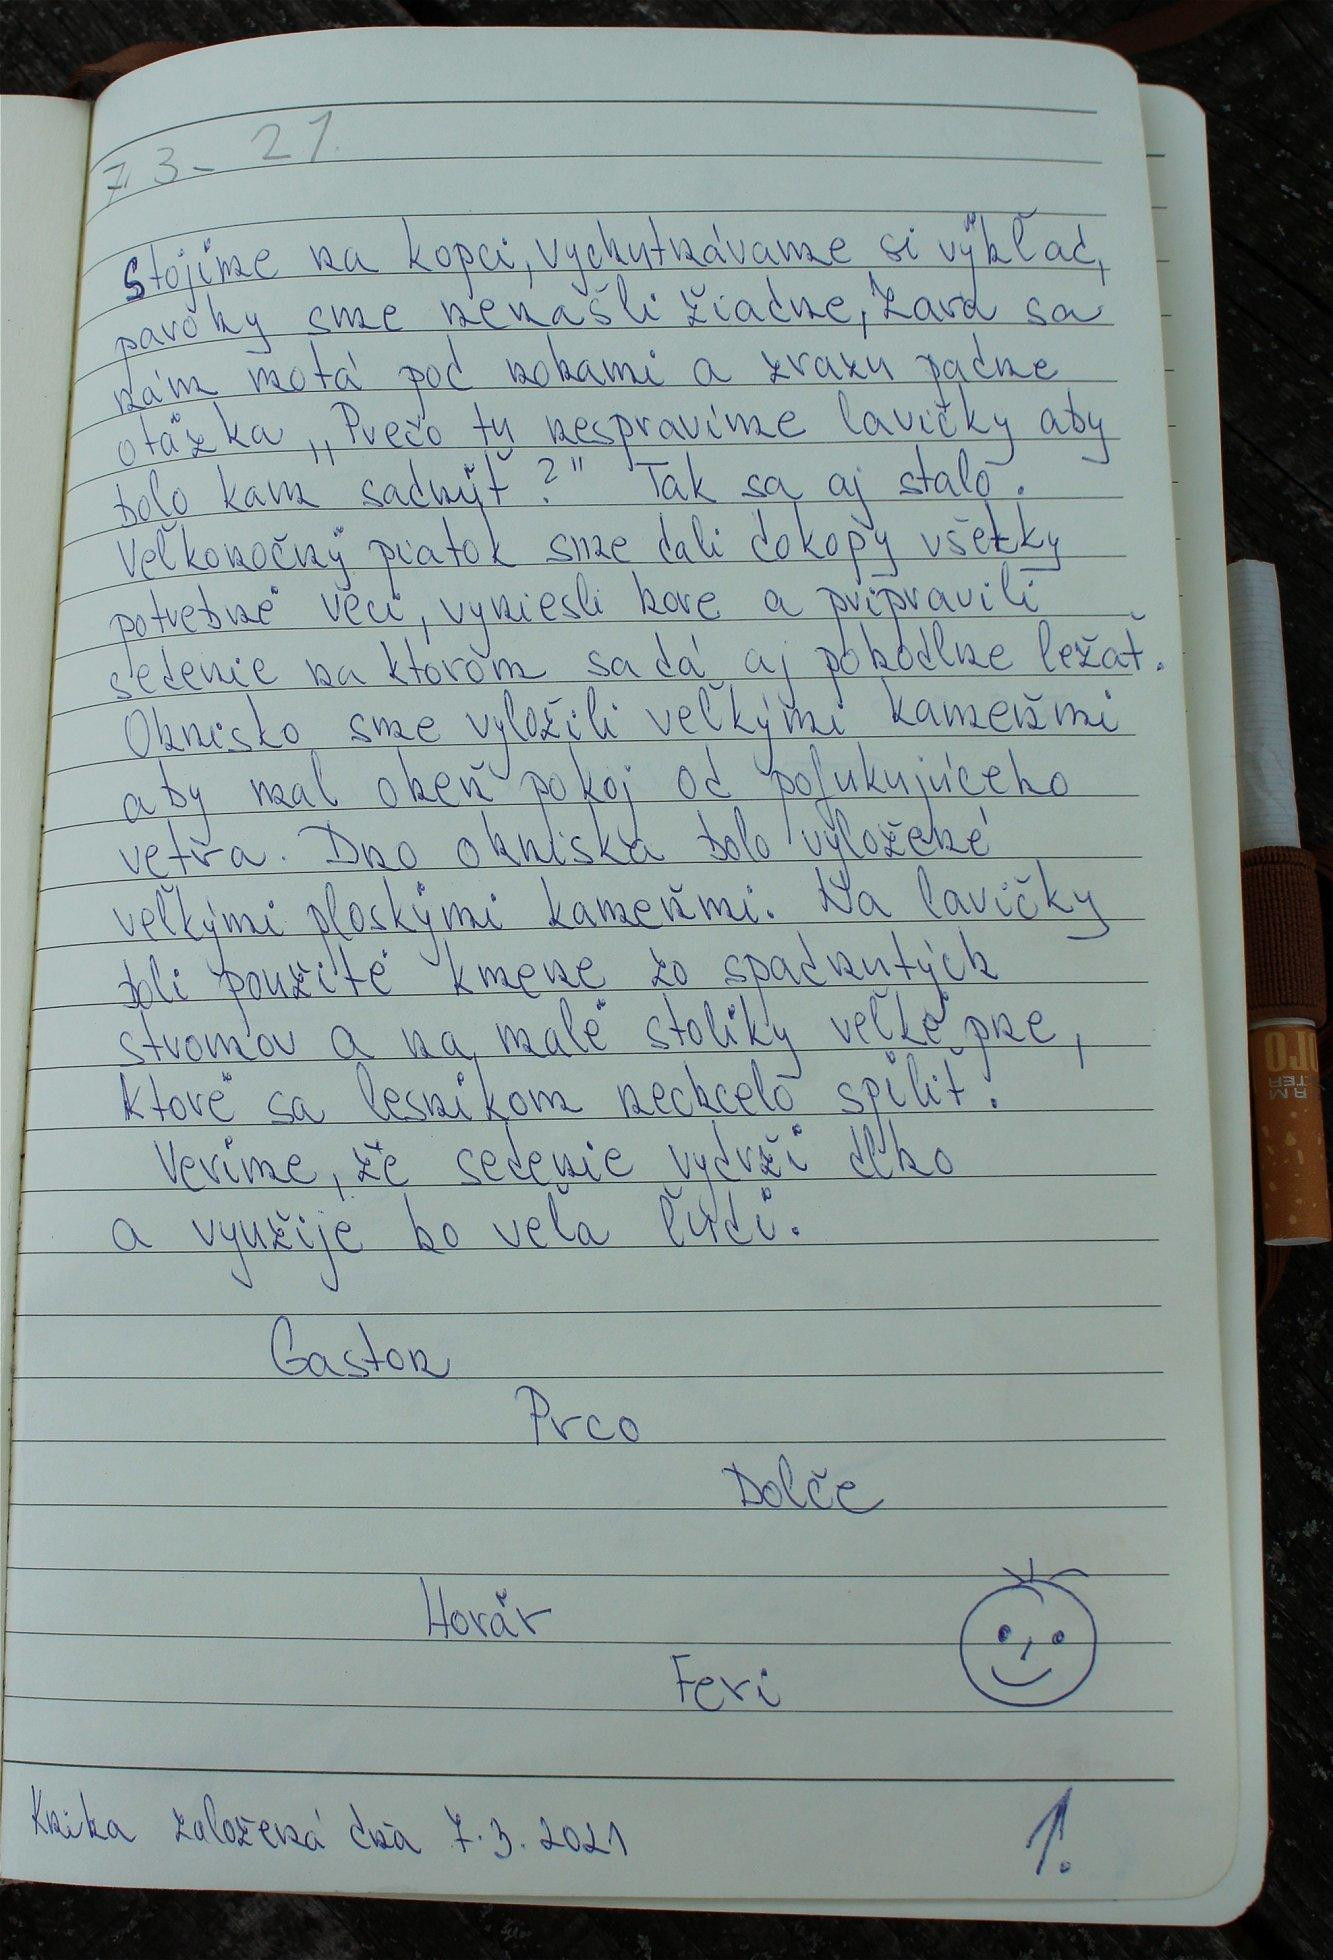 7. 3. 21.
Stojíme na kopci, vychutnávame si výhľad,
parohy sme nenašli žiadne, Zara sa
nám motá pod nohami a zrazu padne
otázka „Prečo tu nespravíme lavičky aby
bolo kam sadnúť?" Tak sa aj stalo.
Veľkonočný piatok sme dali dokopy všetky
potrebné veci, vyniesli hore a pripravili
sedenie na ktorom sa dá aj pohodlne ležať.
Ohnisko sme vyložili veľkými kameňmi
aby mal oheň pokoj od pofukujúceho
vetra. Dno ohniska bolo vyložené
veľkými ploskými kameňmi. Na lavičky
boli použité kmene zo spadnutých
stromov a na malé stolíky veľké pne,
ktoré sa lesníkom nechcelo spíliť.
Veríme, že sedenie vydrží dlho
a využije ho veľa ľudí.
Gaston
Prco
Dolče
Horár
Feri
Kniha založená dňa 7.3.2021
1.